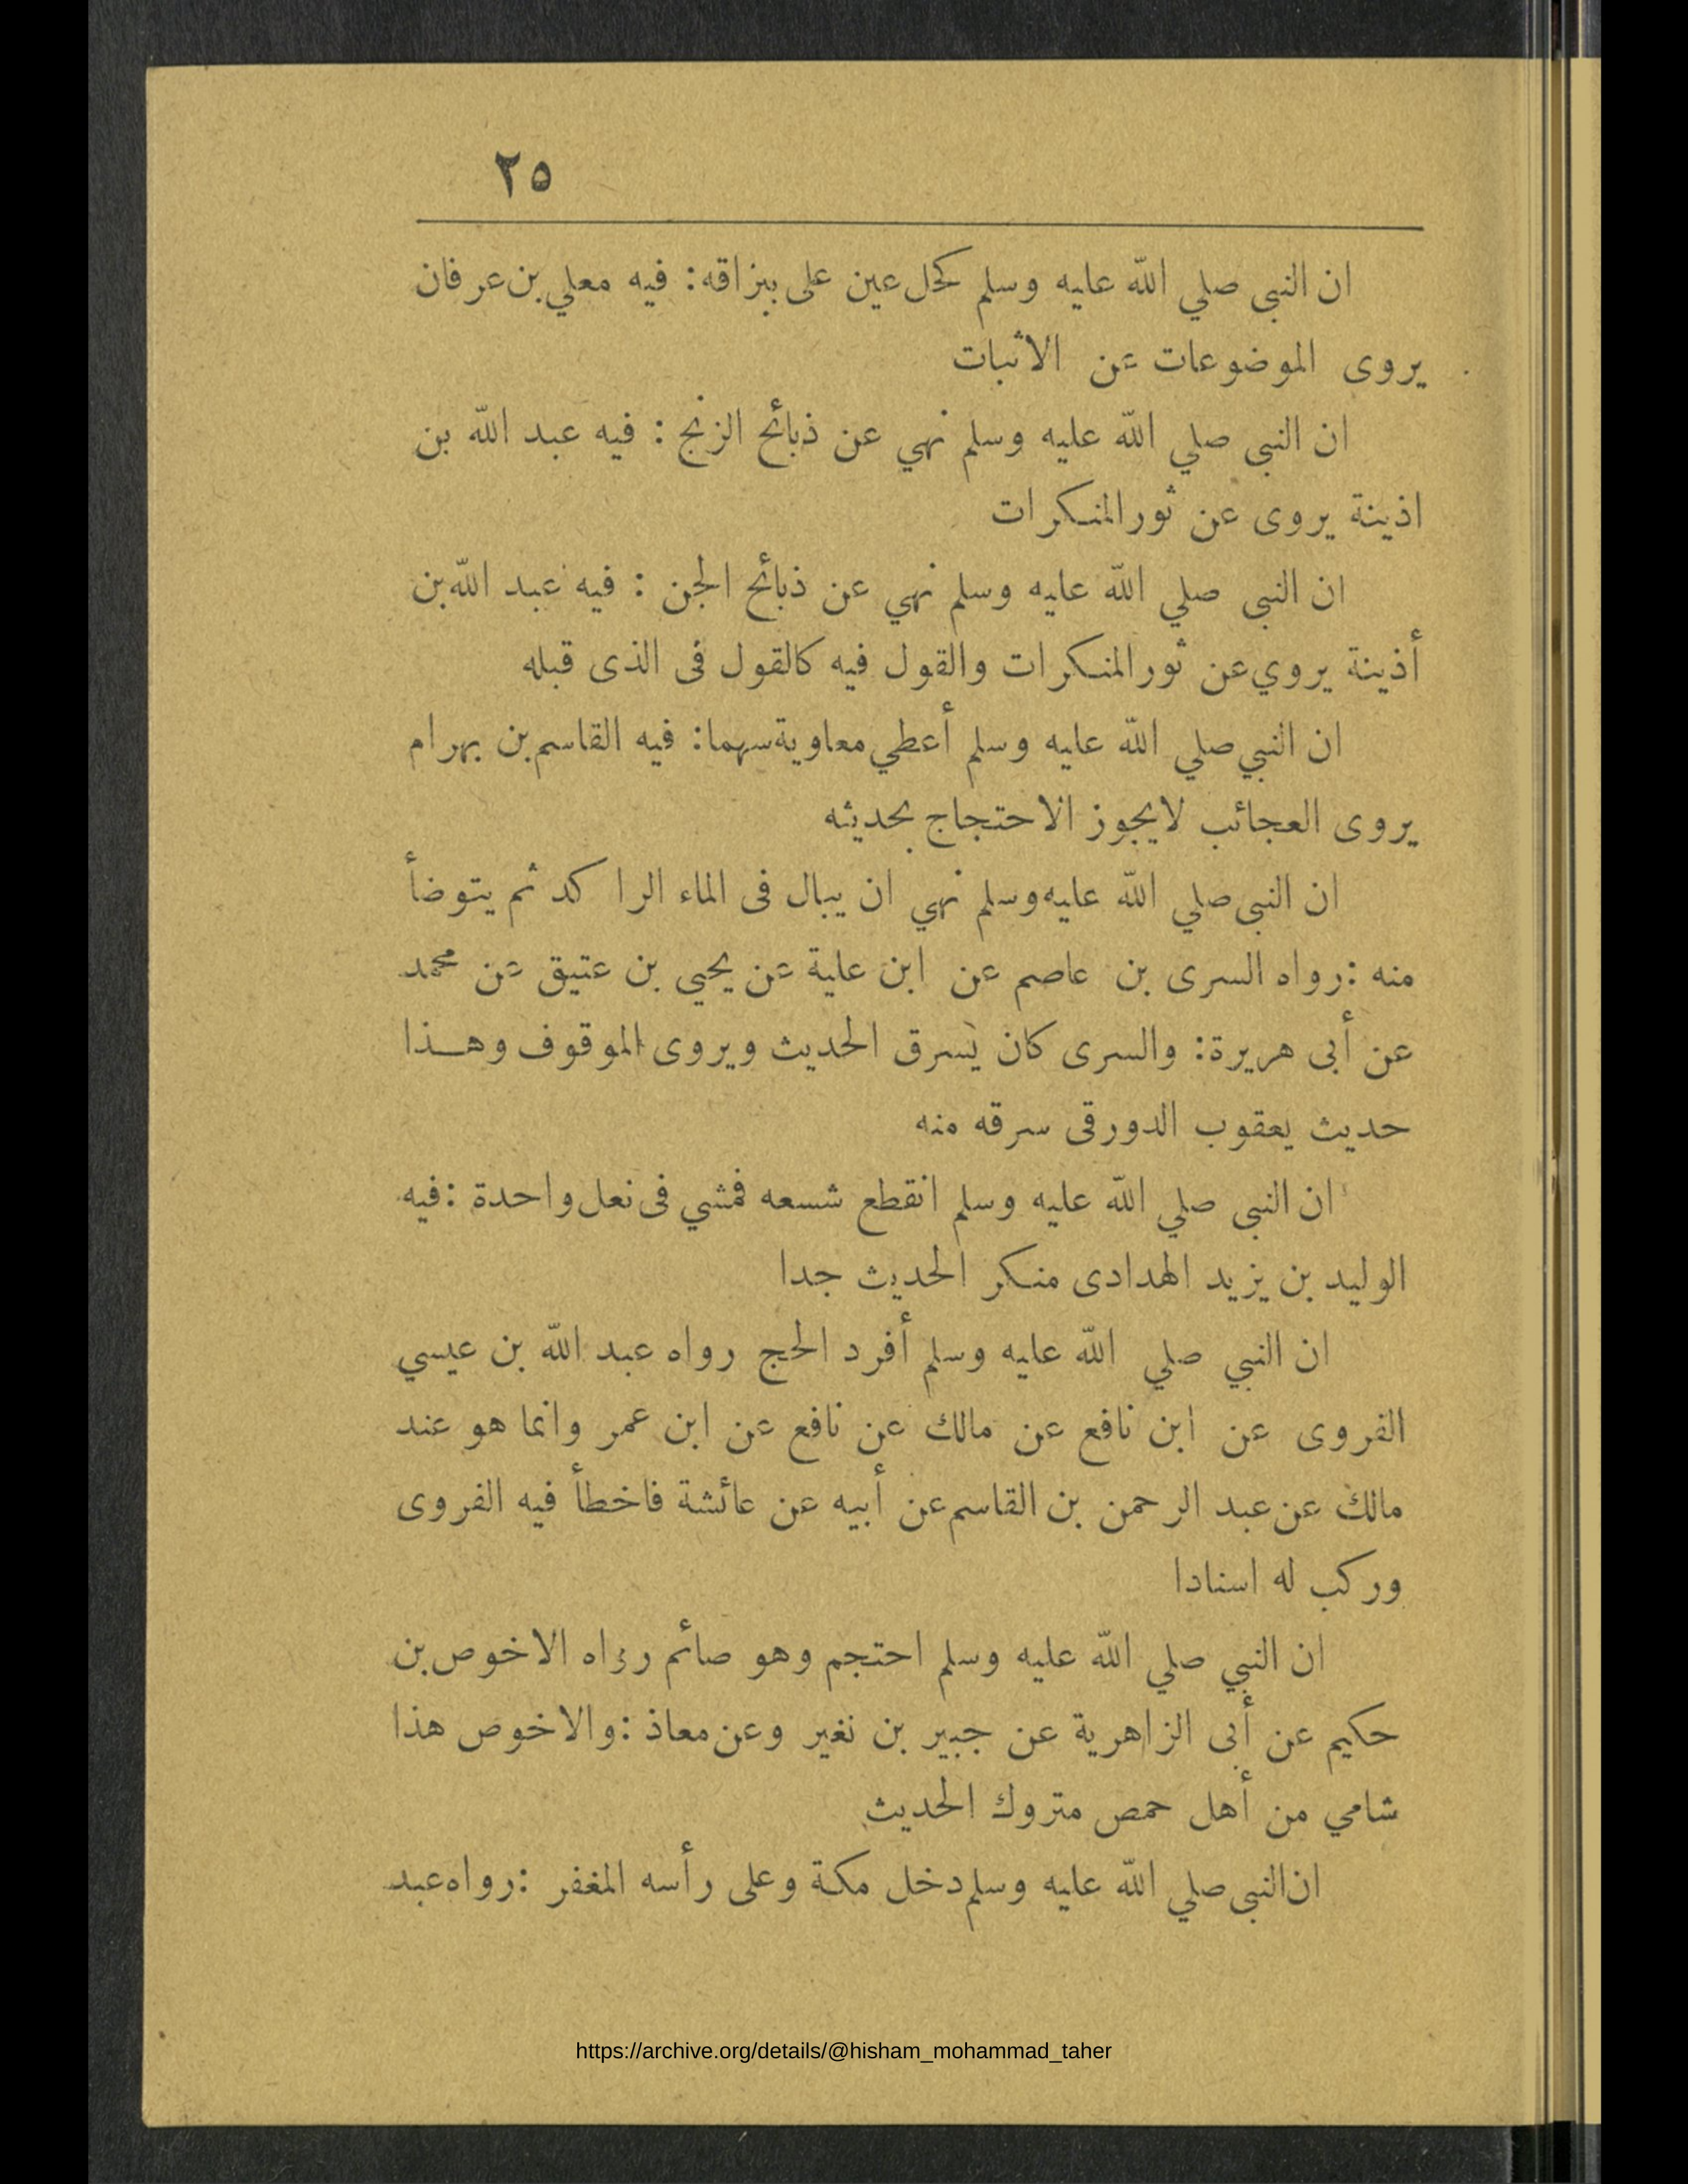 ٢٥
ان النبى صلي الله عليه وسلم كحل عين على ببزاقه: فيه معلي بن عرفان
يروى الموضوعات عن الاثبات
ان النبى صلي الله عليه وسلم نهي عن ذبائح الزنج : فيه عبد الله بن
اذينة يروى عن ثور المنكرات
ان النبى صلي الله عليه وسلم نهي عن ذبائح الجن : فيه عبد الله بن
أذينة يروي عن ثور المنكرات والقول فيه كالقول فى الذى قبله
ان النبي صلي الله عليه وسلم أعطي معاوية سهما: فيه القاسم بن بهرام
يروى العجائب لايجوز الاحتجاج بحديثه
ان النبى صلي الله عليه وسلم نهي ان يبال فى الماء الراكد ثم يتوضأ
منه :رواه السرى بن عاصم عن ابن علية عن يحيي بن عتيق عن محمد
عن أبى هريرة: والسرى كان يسرق الحديث ويروى الموقوف وهذا
حديث يعقوب الدورقى سرقه منه
ان النبى صلي الله عليه وسلم انقطع شسعه فمشي فى نعل واحدة :فيه
الوليد بن يزيد الهدادى منكر الحديث جدا
ان النبي صلي الله عليه وسلم أفرد الحج رواه عبد الله بن عيسي
الفروى عن ابن نافع عن مالك عن نافع عن ابن عمر وانما هو عند
مالك عن عبد الرحمن بن القاسم عن أبيه عن عائشة فاخطأ فيه الفروى
وركب له اسنادا
ان النبي صلي الله عليه وسلم احتجم وهو صائم رواه الاخوص بن
حكيم عن أبى الزاهرية عن جبير بن نغير وعن معاذ :والاخوص هذا
شامي من أهل حمص متروك الحديث
ان النبى صلي الله عليه وسلم دخل مكة وعلى رأسه المغفر :رواه عبد
https://archive.org/details/@hisham_mohammad_taher